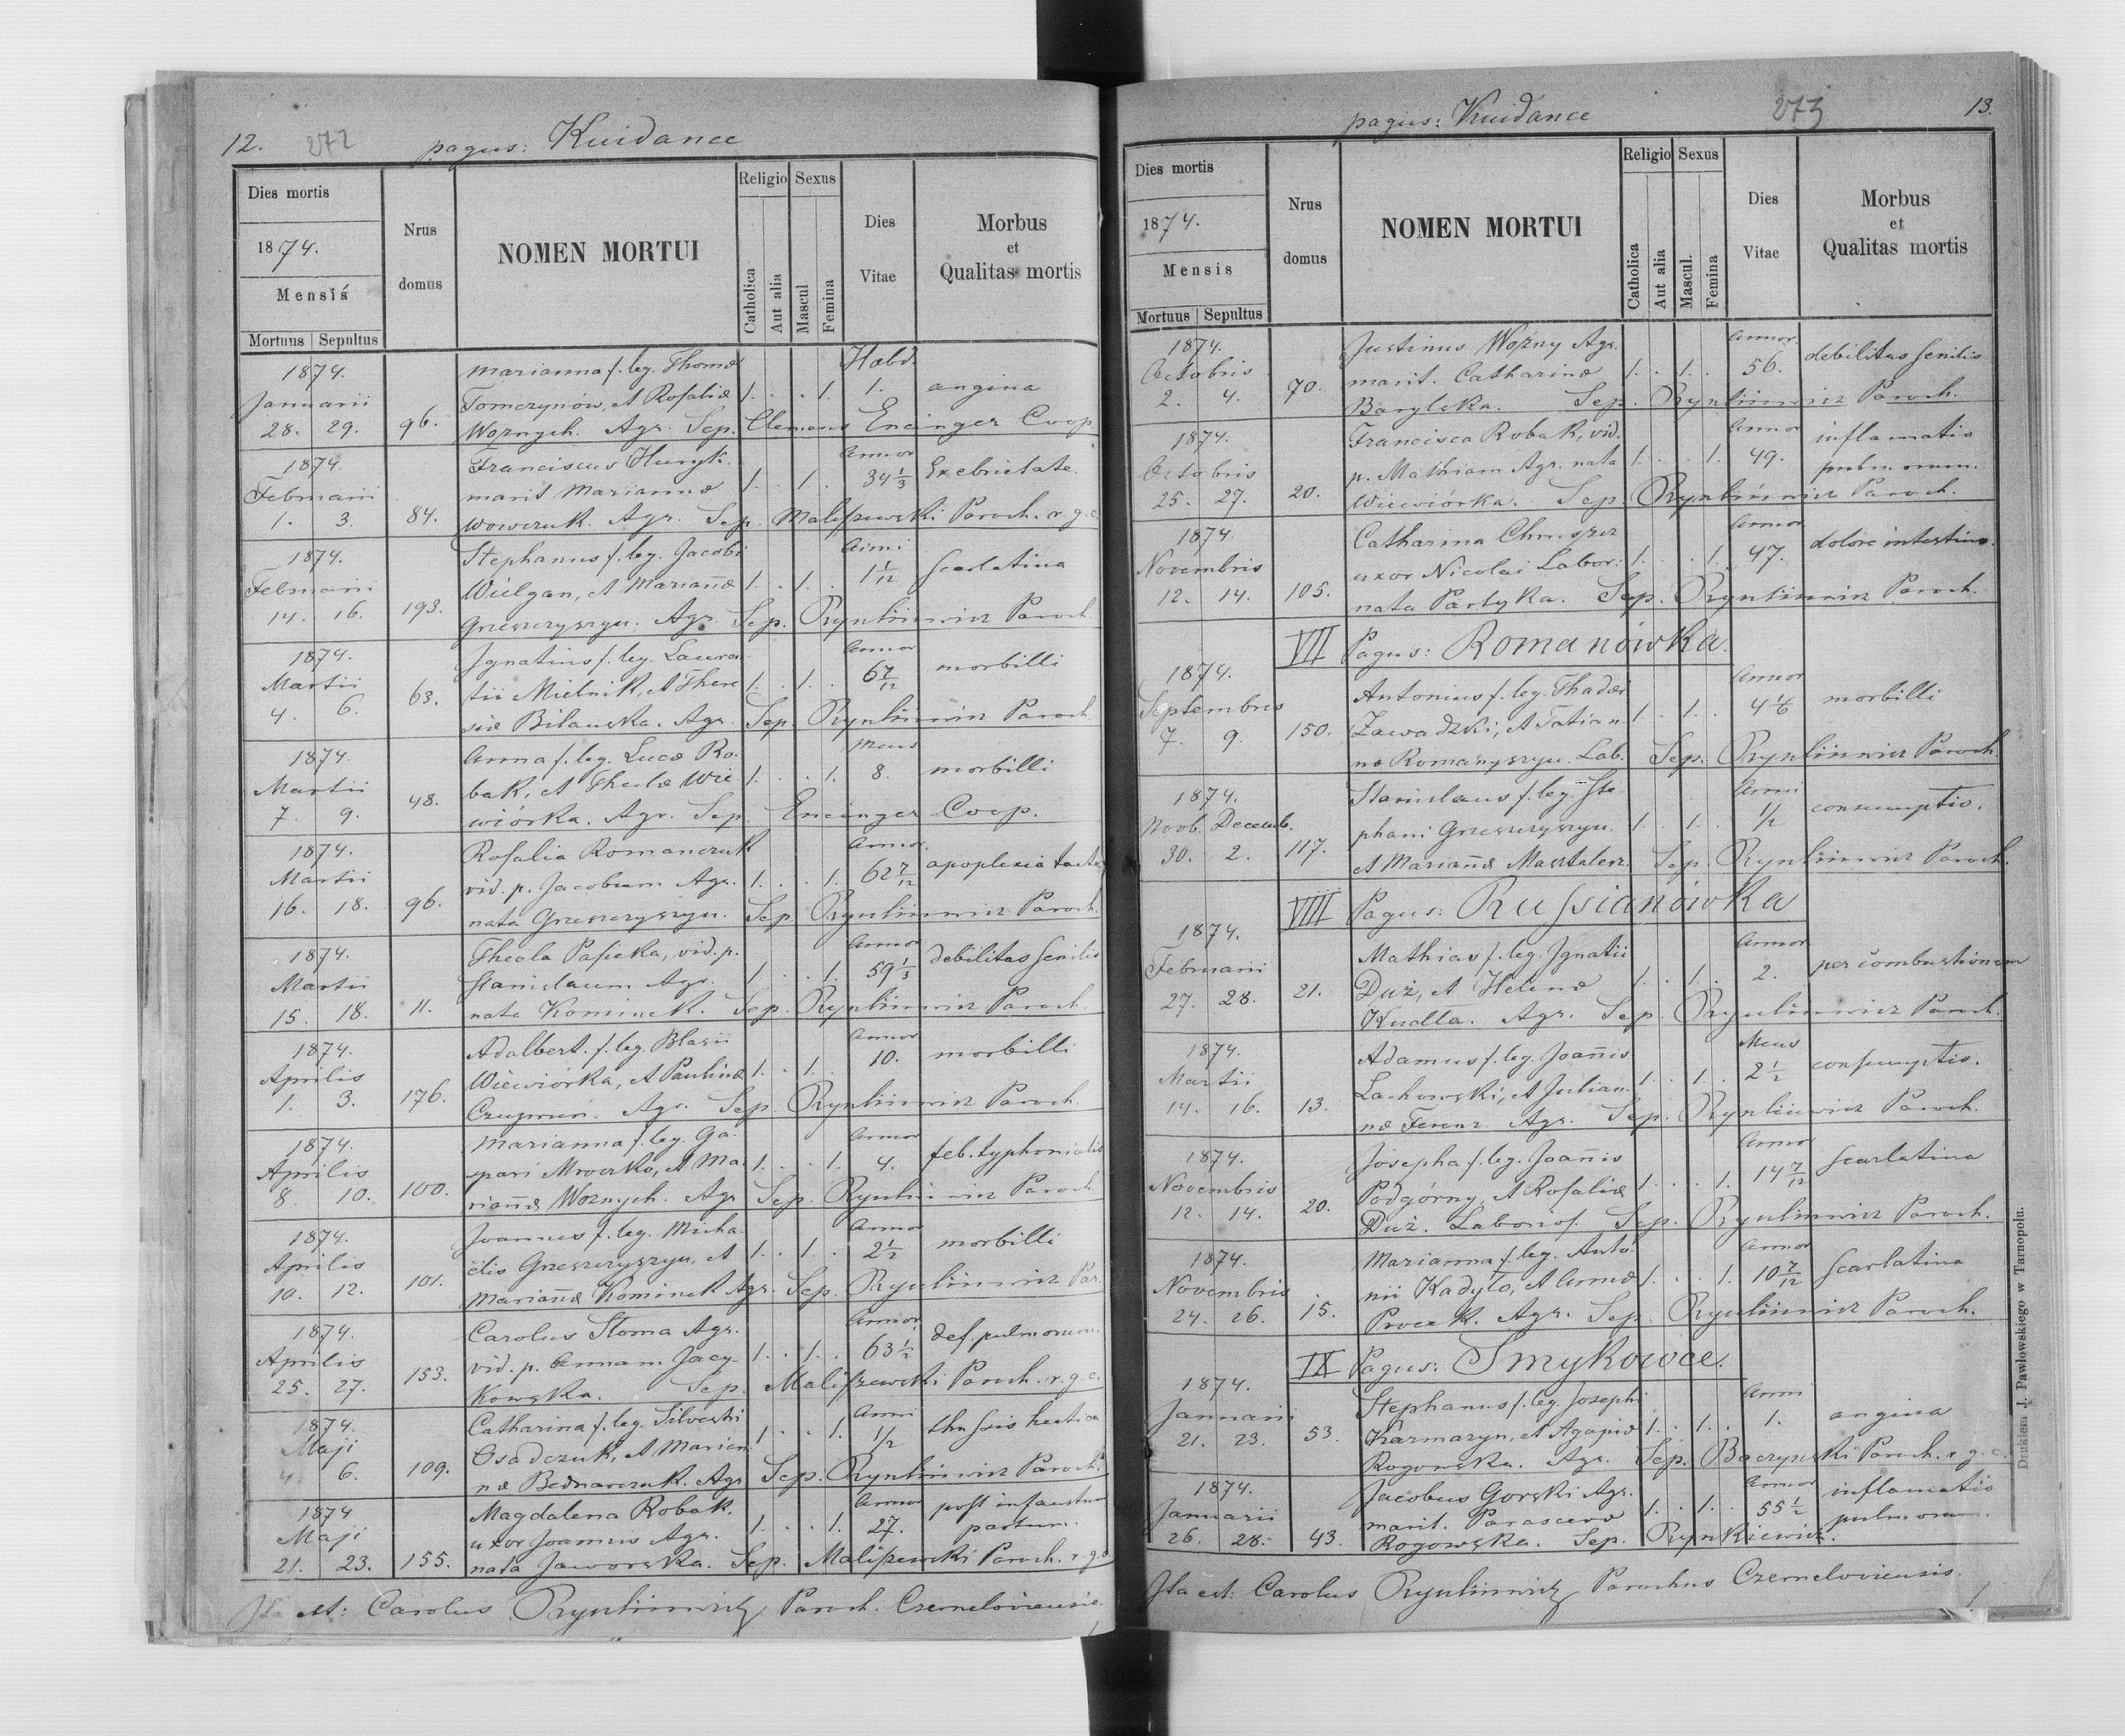 12. 272 pagus: Kuidance
Dies mortis
1874.
Mensis
Mortuus Sepultus
Nrus domus
NOMEN MORTUI
Religio Sexus
Catholica Aut alia Mascul Femina
Dies Vitae
Morbus et Qualitas mortis
1874. Marianna f. leg. Thomæ Hebd.
Januarii Tomczynów, et Rosaliæ 1. . . 1. 1. angina
28. 29. 96. Woznych. Agr. Sep. Clemens Encinger Coop.
1874. Franciscus Huryk. Annor
Februarii marit Mariannæ 1. . 1. . 34 1/3 Ex ebrietate.
1. 3. 84. Wowczuk. Agr. Sep. Maliszewski Paroch. r. g. c.
1874. Stephanus f. leg. Jacobi Anni
Februarii Wielgan, et Mariañæ 1. . 1. . 1 1/12 scarlatina
14. 16. 193. Grzeszczyszyn. Agr. Sep. Rynliiwicz Paroch.
1874. Ignatius f. leg. Lauren Annor
Martii tii Mielnik, et There 1. . 1. . 6 7/12 morbilli
4. 6. 63. siæ Bilauska. Agr. Sep. Paroch.
1874. Anna f. leg. Lucæ Ro- Mens
Martii bak, et Theclæ Wie 1. . . 1. 8. morbilli
7. 9. 48. wiórka. Agr. Sep. Encinger Coop.
1874. Rosalia Romanczuk Annor.
Martii vid. p. Jacobum Agr. 1. . . 1. 62 7/12 apoplexia tacta
16. 18. 96. nata Grzeszczyszyn. Sep. Paroch.
1874. Thecla Pasieka, vid. p. Annor debilitas senilis
Martii Stanislaum Agr. 1. . . 1. 59 1/3
15. 18. 11. nata Kominek. Sep. Paroch.
1874. Adalbert. f. leg. Blasii Annor
Aprilis Wiewiórka, et Paulinæ 1. . 1. . 10. morbilli
1. 3. 176. Agr. Sep. Paroch.
1874. Marianna f. leg. Ga- Annor
Aprilis spari Mroczko, et Ma 1. . . 1. 4. feb. typhonialis
8. 10. 100. riañæ Woznych. Agr. Sep. Paroch.
1874. Joannes f. leg. Micha- Annor
Aprilis ëlis Grzeszczyszyn, et 1. . 1. . 2 1/2 morbilli
10. 12. 101. Mariañæ Kominek Agr. Sep. Par.
1874. Carolus Stoma Agr. Annor
Aprilis vid. p. Annam Jacy- 1. . 1. . 63 1/2 def. pulmorum.
25. 27. 153. kowska. Sep. Maliszewski Paroch. r. g. c.
1874. Catharina f. leg. Silvestri Anni
Maji Osadczuk, et Marian 1. . . 1. 1/2 hectica
4. 6. 109. næ Bednarczuk. Agr. Sep. Paroch.
1874 Magdalena Robak. Annor post infaustum
Maji uxor Joannis Agr. 1. . . 1. 27. partum.
21. 23. 155. nata Jaworska. Sep. Maliszewski Paroch. r. g. c.
Ita est: Carolus Paroch. Czerneloviensis.
pagus: Kuidance 273 13.
Dies mortis
1874.
Mensis
Mortuus Sepultus
Nrus domus
NOMEN MORTUI
Religio Sexus
Catholica Aut alia Mascul. Femina
Dies Vitae
Morbus et Qualitas mortis
1874. Justinus Wozny Agr. Annor.
Octobris marit. Catharinæ 1. . 1. . 56. debilitas senilis
2. 4. 70. Barylska. Sep. Paroch.
1874. Francisca Robak, vid. Annor inflamatio
Octobris p. Mathiam Agr. nata 1. . . 1. 49. pulmorum.
25. 27. 20. Wiewiórka. Sep. Paroch.
1874. Catharina Chruszcz Annor
Novembris uxor Nicolai Labor: 1. . . 1. 47. dolore intestino.
12. 14. 105. nata Partyka. Sep. Paroch.
VII Pagus: Romanówka.
1874. Antonius f. leg. Thadæi Annor
Septembris Zawadzki, et Tatian- 1. . 1. . 4 1/6 morbilli
7. 9. 150. næ Romanyszyn. Lab. Sep. Paroch.
1874. Stanislaus f. leg. Ste Anni
Novb. Decemb. phani Grzeszczyszyn. 1. . 1. . 1/2 consumptio.
30. 2. 117. et Mariañæ Masztalerz. Sep. Paroch.
VIII Pagus: Russianówka
1874. Mathias f. leg. Ignatii Annor
Februarii Duż, et Helenæ 1. . 1. . 2. per combustionem
27. 28. 21. Kudla. Agr. Sep. Paroch.
1874. Adamus f. leg. Joañis Mens
Martii Lachowski, et Julian- 1. . 1. . 2 1/2 consumptio.
14. 16. 13. næ Ferenz. Agr. Sep. Paroch.
1874. Josepha f. leg. Joañis Annor
Novembris Podgórny, et Rosaliæ 1. . . 1. 14 7/12 scarlatina
12. 14. 20. Duż. Laborios. Sep. Paroch.
1874. Marianna f. leg. Anto- Annor
Novembris nii Kadylo, et Annæ 1. . . 1. 10 7/12 scarlatina
24. 26. 15. Procek. Agr. Sep. Paroch.
IX Pagus: Smykowce.
1874. Stephanus f. leg. Josephi Anni
Januarii Karmazyn, et Agapiæ 1. . 1. . 1. angina
21. 23. 53. Rogowska. Agr. Sep. Baczynski Paroch. r. g. c.
1874. Jacobus Gorski Agr. Annor inflamatio
Januarii marit. Parascevæ 1. . 1. . 55 1/2 pulmorum.
26. 28. 43. Rogowska. Sep. Rynkiewicz.
Ita est: Carolus Parochus Czerneloviensis.
Drukiem J. Pawłowskiego w Tarnopolu.